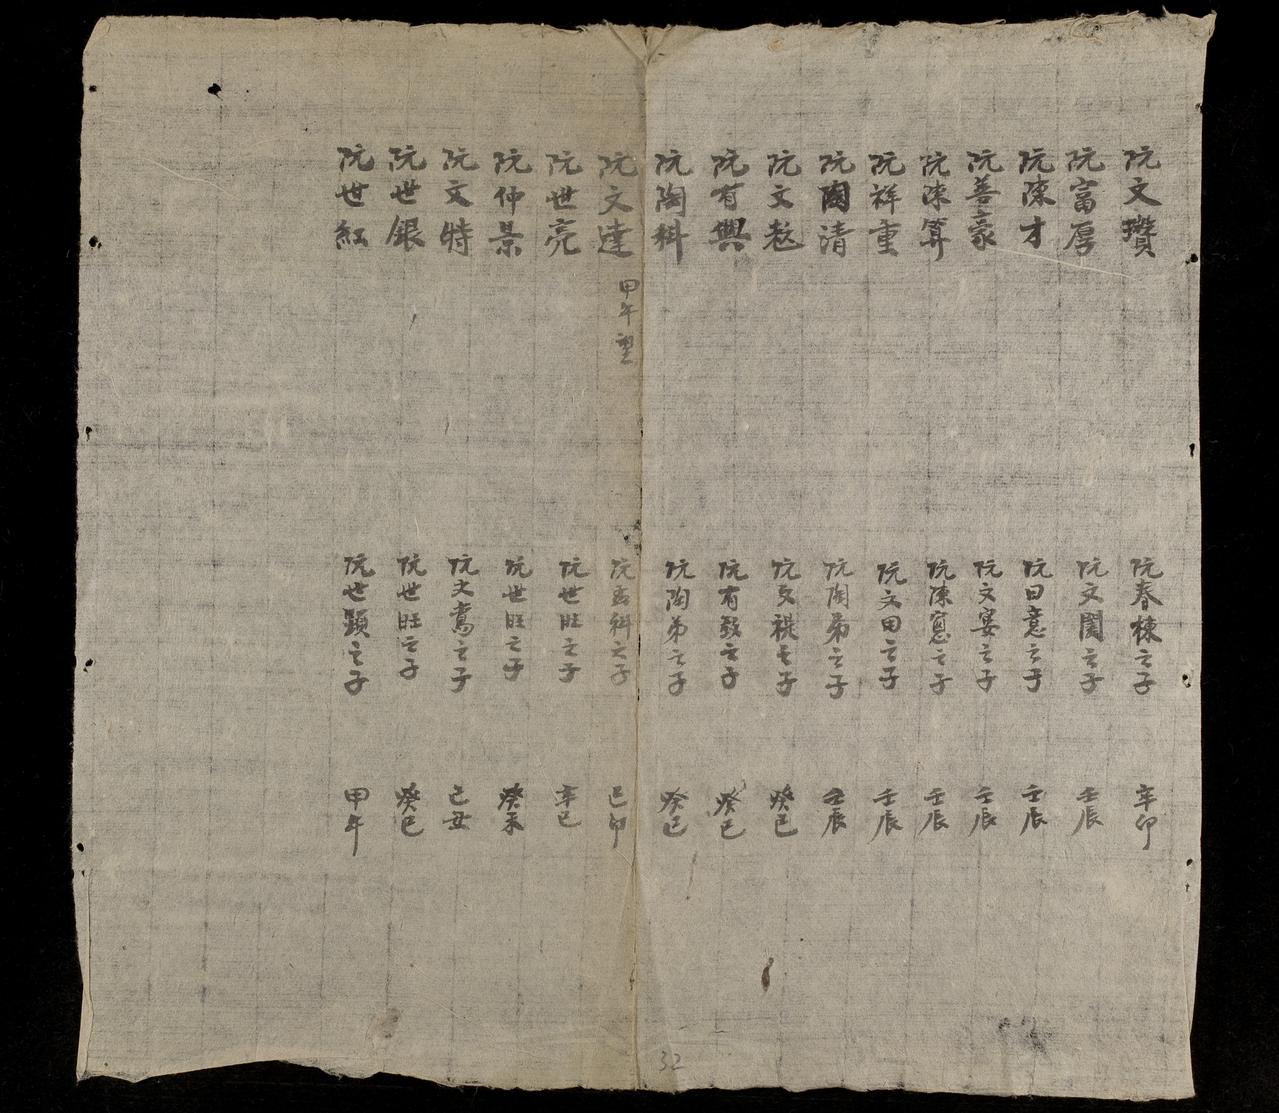 阮文瓚 阮春棟之子 辛卯
阮富厚 阮文閨之子 壬辰
阮陳才 阮曰意之子 壬辰
阮善豪 阮文宴之子 壬辰
阮陳算 阮陳窻之子 壬辰
阮祥重 阮文田之子 壬辰
阮陶清 阮陶弟之子 壬辰
阮文 阮文禔之子 癸巳
阮有興 阮有敎之子 癸巳
阮陶科 阮陶弟之子 癸巳
阮文達 甲午望 阮 科之子 己卯
阮世亮 阮世旺之子 辛巳
阮仲景 阮世旺之子 癸未
阮文特 阮文鳶之子 己丑
阮世銀 阮世旺之子 癸巳
阮世紅 阮世顕之子 甲午
32